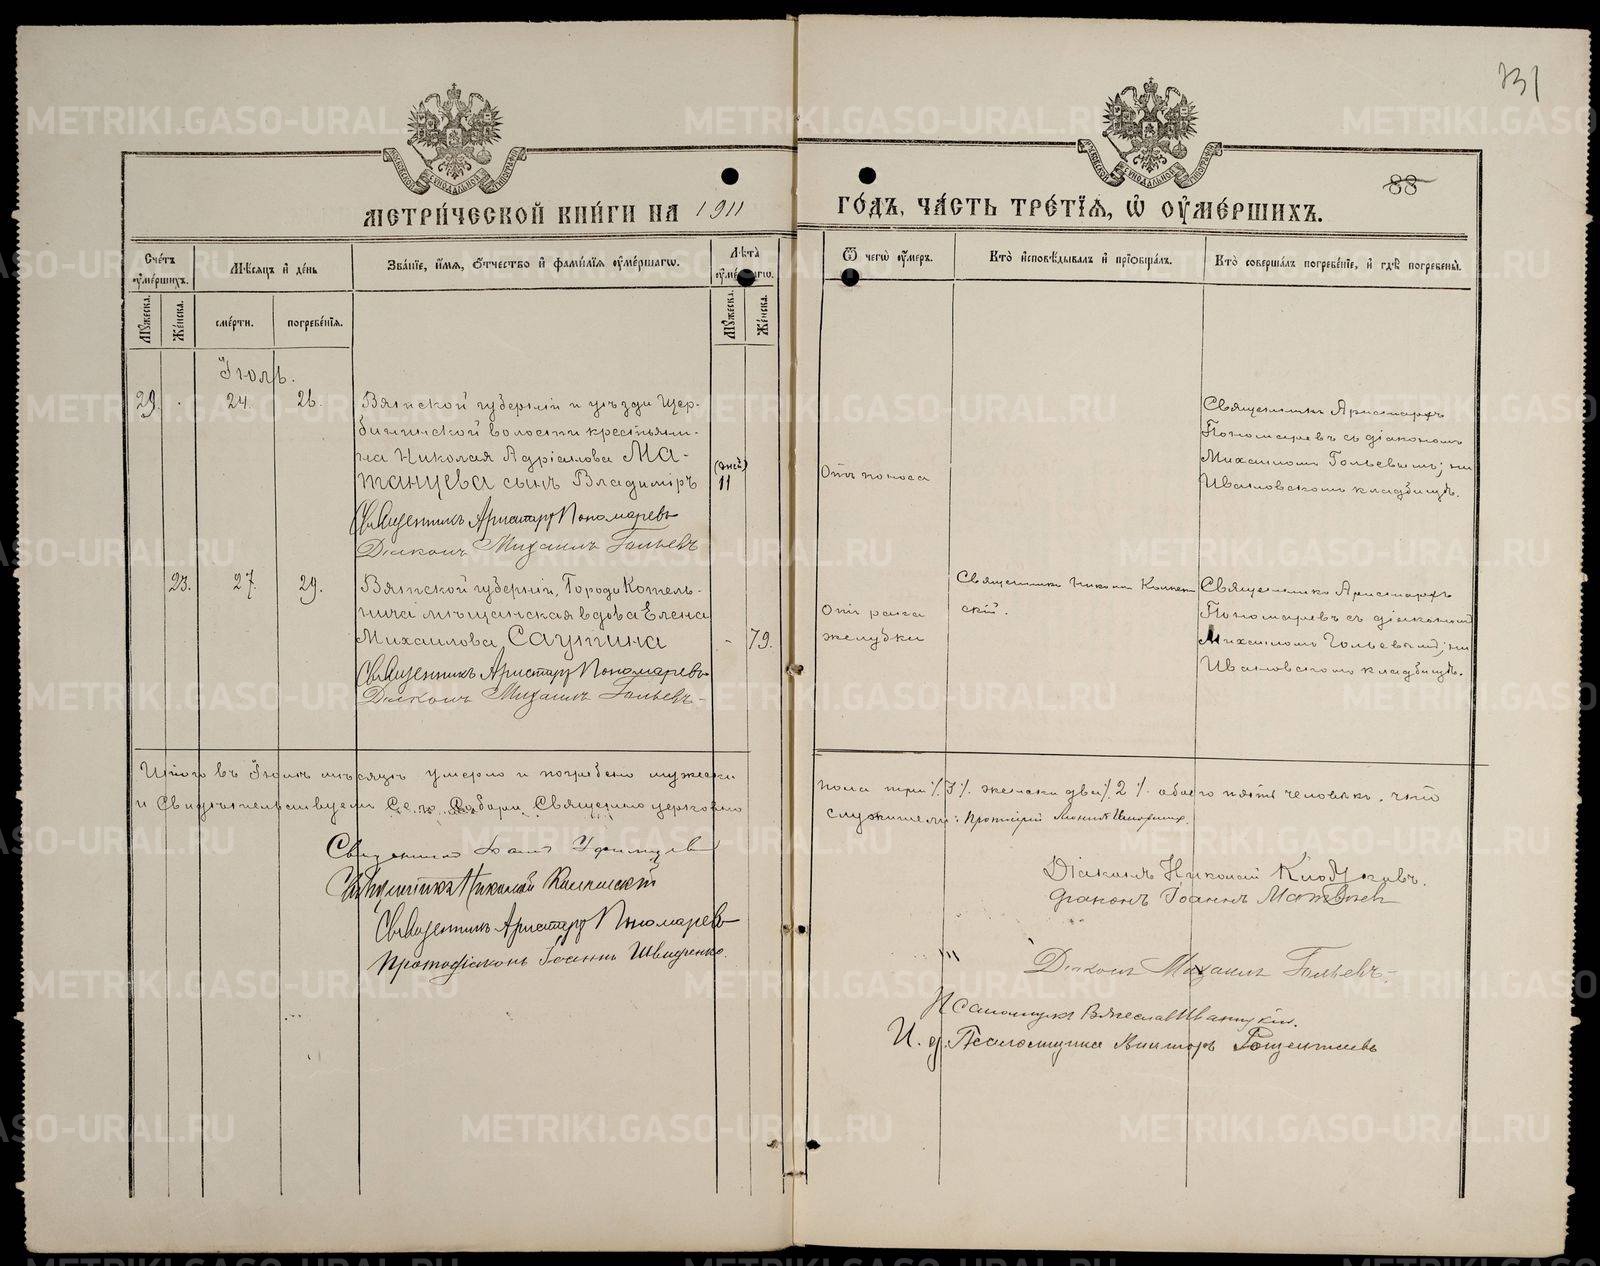 731
88
МЕТРИ́ЧЕСКОЙ КНИ́ГИ НА 1911
ГО́ДЪ, ЧА́СТЬ ТРЕ́ТІѦ, Ѡ ОУ҆МЕ́РШИХЪ.
Сче́тъ оу҆ме́ршихъ.
Мѣ́сѧцъ и҆ де́нь
Зва́нїе, и҆́мѧ, ѻ҆́тчество и҆ фами́лїѧ оу҆ме́ршагѡ.
Лѣ́та оу҆ме́ршагѡ.
Мꙋ́жеска.
Же́нска.
сме́рти.
погребе́нїѧ.
Мꙋ́жеска.
Же́нска.
Ѿ чегѡ̀ оу҆́меръ.
Кто̀ и҆сповѣ́дывалъ и҆ прїѡбща́лъ.
Кто̀ соверша́лъ погребе́нїе, и҆ гдѣ̀ погребены̀.
Іюль.
29. 24. 26.
Вятской губерніи и уѣзда Щер-
бининской волости крестьяни-
на Николая Адріанова Ма-
танцева сынъ Владиміръ
(днев)
11
Священникъ Аристархъ Пономаревъ
Діаконъ Михаилъ Гольевъ
Отъ поноса
Священникъ Аристархъ
Пономаревъ съ діакономъ
Михаиломъ Гольевымъ; на
Ивановскомъ кладбищѣ.
23. 27. 29.
Вятской губерніи, Города Котель-
нича мѣщанская вдова Елена
Михаилова Саутина
- 79.
Священникъ Аристархъ Пономаревъ
Діаконъ Михаилъ Гольевъ
Отъ рака
желудка
Священникъ
скій.
Священникъ Аристархъ
Пономаревъ съ діакономъ
Михаиломъ Гольевымъ; на
Ивановскомъ кладбищѣ.
Итого въ Іюлѣ мѣсяцѣ умерло и погребено мужеска
пола три /.3/. женска два /.2/. обоего пять человѣкъ. что
и свидѣтельствуемъ Собора, Священно церковно
служители: Протоіерей
Священникъ
Священникъ Николай
Священникъ Аристархъ Пономаревъ
Протодіаконъ Іоаннъ Швиденко.
Діаконъ Николай
діаконъ Іоаннъ Матвѣевъ
Діаконъ Михаилъ Гольевъ
Псаломщикъ Вячеславъ
И. д. Псаломщика Викторъ
METRIKI.GASO-URAL.RU